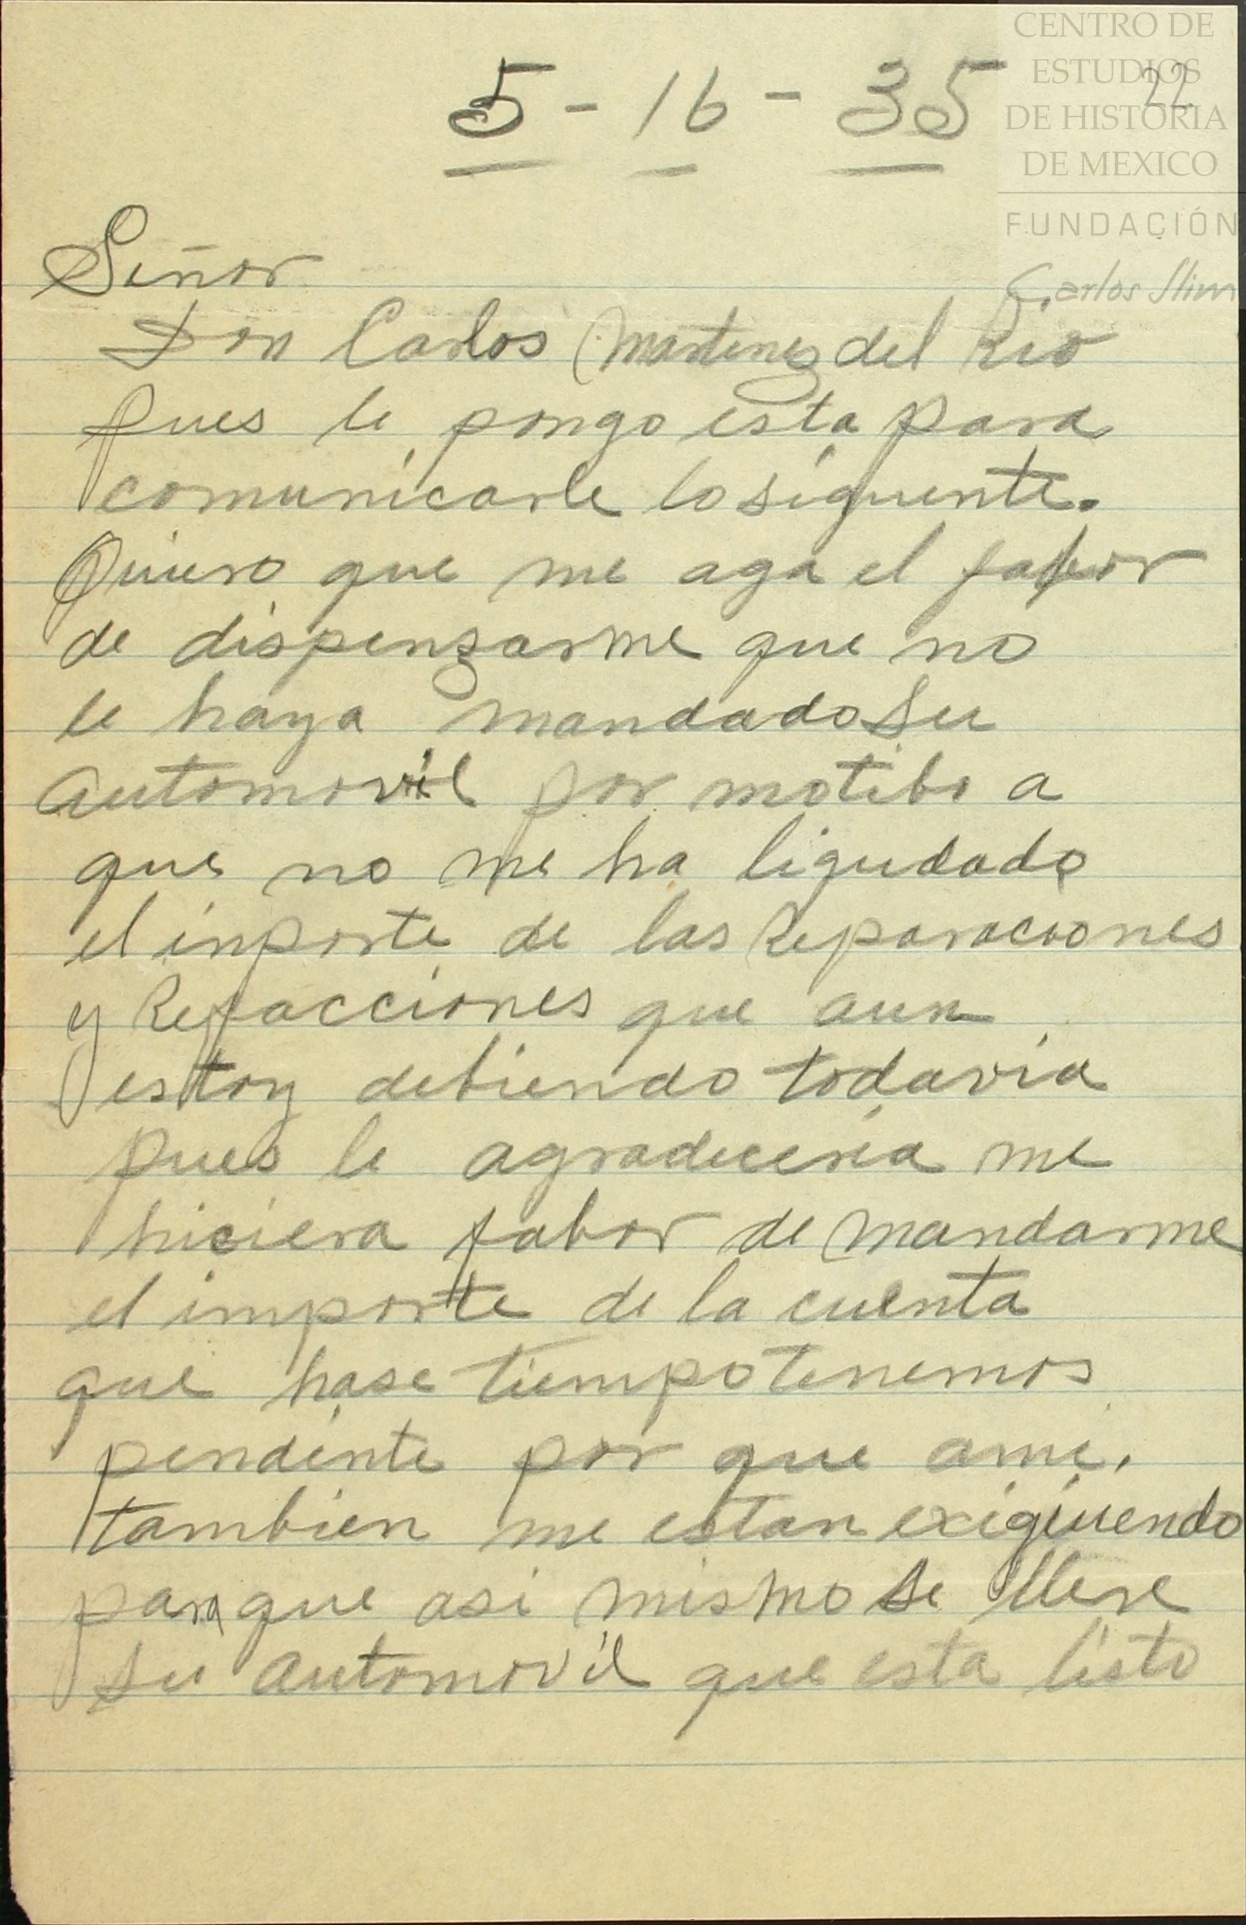 CENTRO DE
ESTUDIOS
DE HISTORIA
DE MEXICO
FUNDACIÓN
Carlos Slim
22
5 - 16 - 35
Señor
Don Carlos Martinez del Rio
pues le pongo esta para
comunicarle lo siguente.
Quiero que me aga el fabor
de dispenzarme que no
le haya mandado su
automovil por motibo a
que no me ha liqudado
el inporte de las Reparaciones
y Refacciones que aun
estoy debiendo todavia
pues le agradeceria me
hiciera fabor de mandarme
el importe de la cuenta
que hase tiempo tenemos
pendinte por que ami.
tambien me estan exigiuendo
para que asi mismo se lleve
su automovil que esta listo